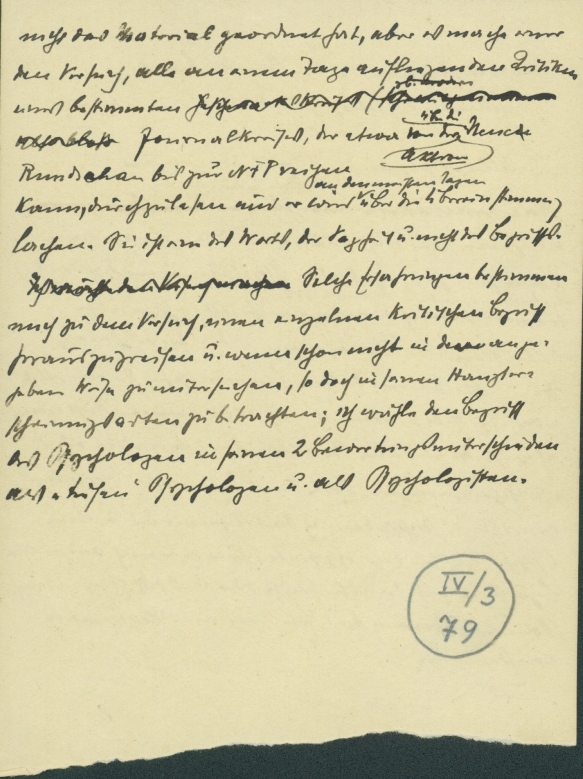 nicht das Material geordnet hat, aber es mache einer
den Versuch, alle an einem Tage aufliegenden Kritiken
eines bestimmten
od. andern
Journalkreises, der etwa von der Neuen
über die
Aktion
Rundschau bis zur NFP reichen
an den meisten Tagen
kann, durchzulesen und er wird über die Übereinstimmung
lachen. Sie ist eine des Worts, der Vagheit u. nicht des Begriffs.
Solche Erfahrungen bestimmen
mich zu dem Versuch, einen einzelnen kritischen Begriff
herauszugreifen u. wenn schon nicht in der ange-
gebenen Weise zu untersuchen, so doch in seinen Haupter-
scheinungsarten zu betrachten; ich wähle den Begriff
des Psychologen in seinen 2 Bewertungsunterschieden
als Psychologen u. als Psychologisten.
IV/3
79